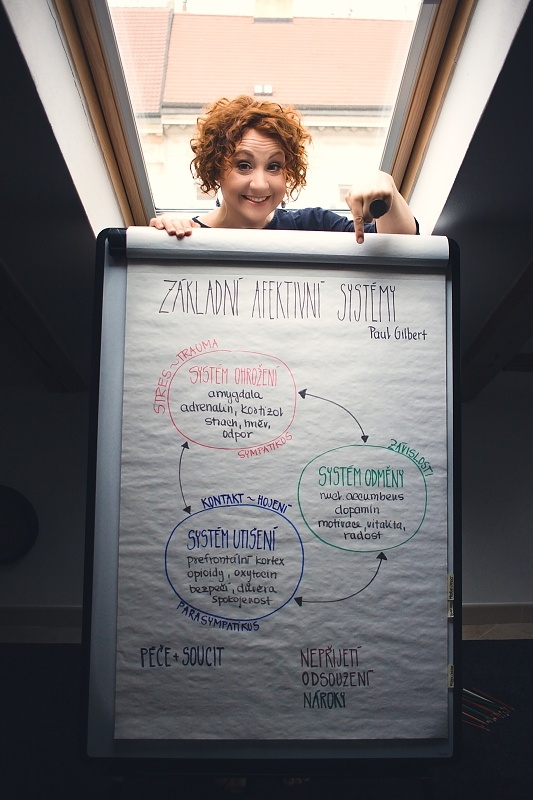 ZÁKLADNÍ AFEKTIVNÍ SYSTÉMY
Paul Gilbert
STRES ~ TRAUMA
SYSTÉM OHROŽENÍ
amygdala
adrenalin, kortizol
strach, hněv,
odpor
SYMPATIKUS
ZÁVISLOSTI
SYSTÉM ODMĚNY
nucl. accumbens
dopamin
motivace, vitalita,
radost
KONTAKT ~ HOJENÍ
SYSTÉM UTIŠENÍ
prefrontální kortex
opioidy, oxytocin
bezpečí, důvěra
spokojenost
PARASYMPATIKUS
PÉČE + SOUCIT
NEPŘIJETÍ
ODSOUZENÍ
NÁROKY